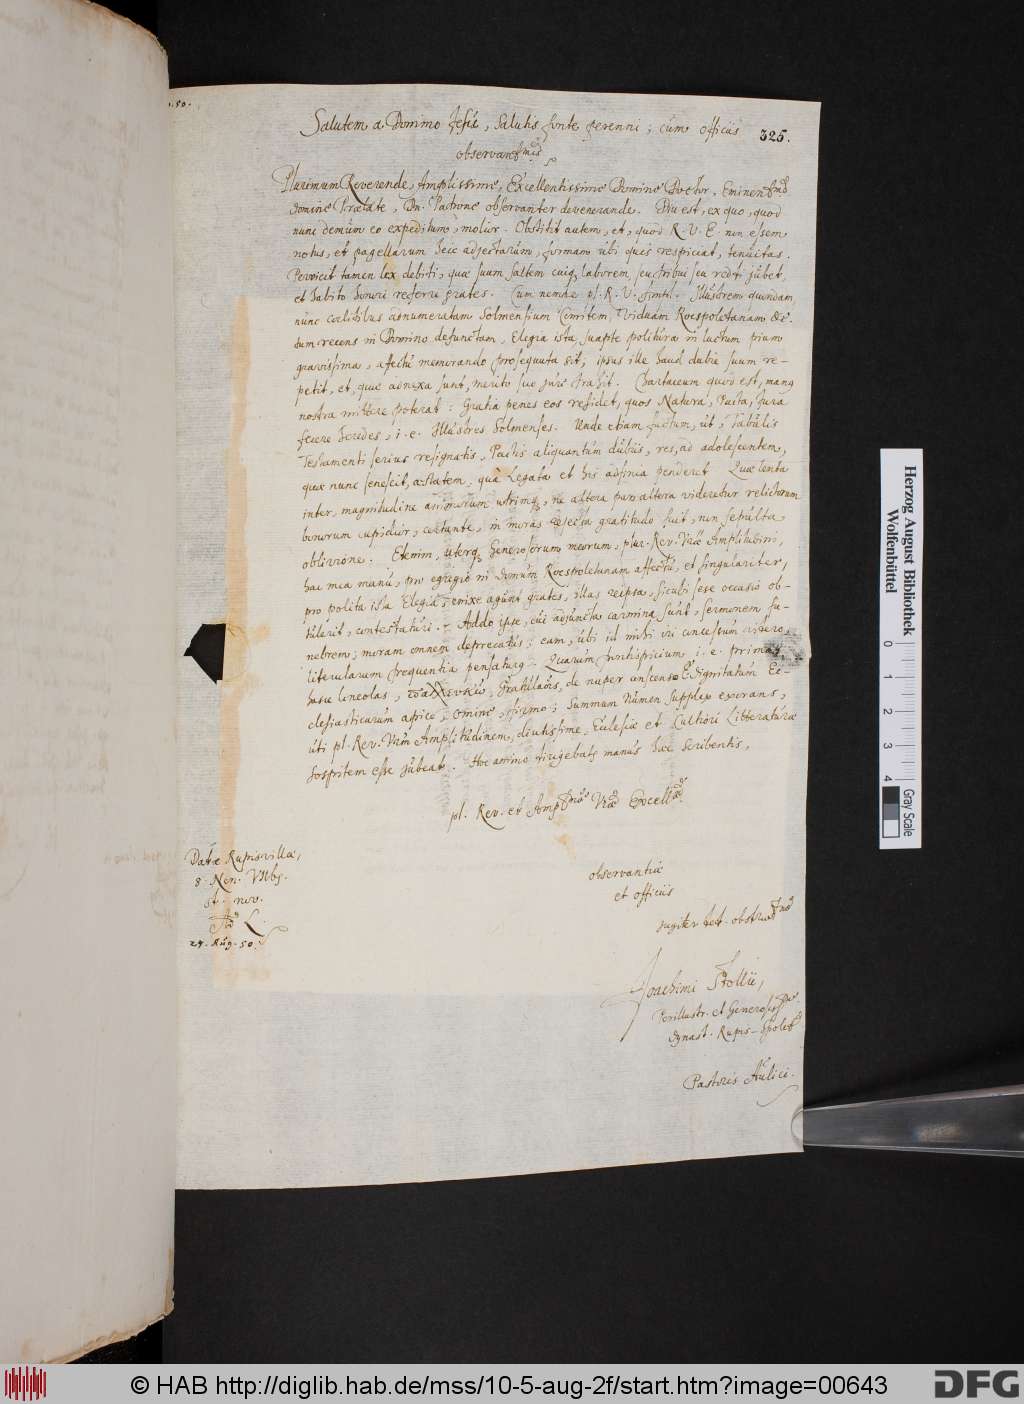 325.
Salutem a Domino Jesu, salutis fonte perenni; cum officiis
Plurimum Reverende, Amplissime, Excellentissime Domine Doctor,
Domine Praelate, Dn. Patrone observanter devenerande. Diu est, ex quo, quod
nunc demum eo expeditum, molior. Obstitit autem, et, quod R. V. E. non essem
notus, et pagellarum heic adjectarum, formam ubi quis respiciat, tenuitas.
Pervicit tamen lex debiti, quae suum saltem cuiq, laborem, seu tribui seu reddi jubet,
et habito honori referre grates. Cum nempe pl. R. V. Illustrem quondam,
nunc coelitibus adnumeratam Solmensium Comitem, Viduam Roespoletanam &c.
dum recens in Domino defunctam, Elegia ista, suapte politura in luctum
gravissima, affectu memorando prosequuta sit, ipsus ille haud dubie suum re-
petit, et, quae adnexa sunt, merito suo jure trahit. Chartaceum quod est, manq
nostra mittere poterat: Gratia penes eos residet, quos Natura, Pacta, Jura
fecere heredes, i. e. Illustres Solmenses. Unde etiam factum, ut, Tabulis
Testamenti serius resignatis, Pactis aliquantum dubiis, res, ad adolescentem,
quae nunc senescit, aetatem, qua Legata et his adfinia penderet Quae lenta
inter, magnitudine animorum utrimq, ne altera pars altera videretur relictorum
bonorum cupidior, certante, in moras rejecta gratitudo fuit, non sepulta,
oblivione. Etenim, uterq Generosorum meorum, plur. Rev. Vrae Amplitudini,
hac mea manu, pro egregio in Domum Roespoletanam affectu, et singulariter,
pro polita ista Elegia, enixe agunt grates, illas reipsa, sicubi sese occasio ob-
tulerit, contestaturi. Addo ipse, cui adjuncta carmina sunt, sermonem fu-
nebrem; moram omnem deprecatus; eam, ubi id mihi concessum videro,
literularum frequentia pensaturq. Quarum frontispicium i. e. primas
hasce lineolas, de nuper Dignitatum Ec-
clesiasticarum apice, omine, firmo; Summum Numen supplex exorans,
uti pl. Rev. Vram Amplitudinem, diutissime, Eclesiae et Literaturae
Sospitem esse jubeat. Hoc animo dirigebatq manus haec scribentis,
pl. Rev. et Vrae
observantiae
et officiis
jugiter
Joachimi Stollii,
Perillustr. et
dynast. Rupis-
Pastoris Aulici.
Datae Rupisvillae,
st. nov.
24. Aug. 50.
Herzog August Bibliothek
Wolfenbüttel
0 1 2 3 4
Gray Scale
© HAB http://diglib.hab.de/mss/10-5-aug-2f/start.htm?image=00643
DFG